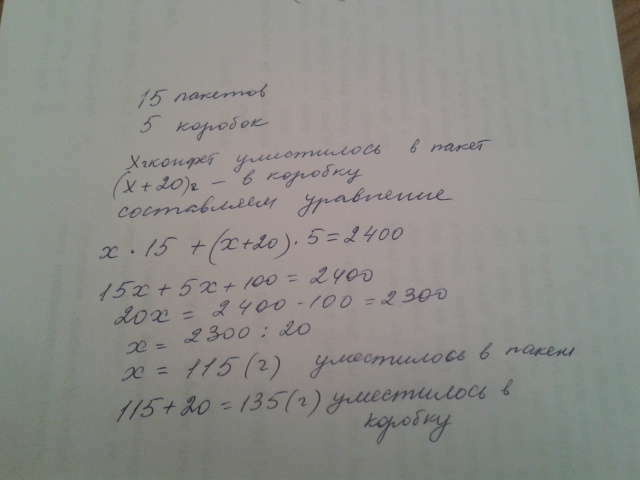 15 пакетов
5 коробок
х г конфет уместилось в пакет
(х+20)г – в коробку
составляем уравнение
х · 15 + (х+20) · 5 = 2400
15х + 5х + 100 = 2400
20х = 2400 - 100 = 2300
х = 2300 : 20
х = 115 (г) уместилось в пакет
115 + 20 = 135 (г) уместилось в
коробку